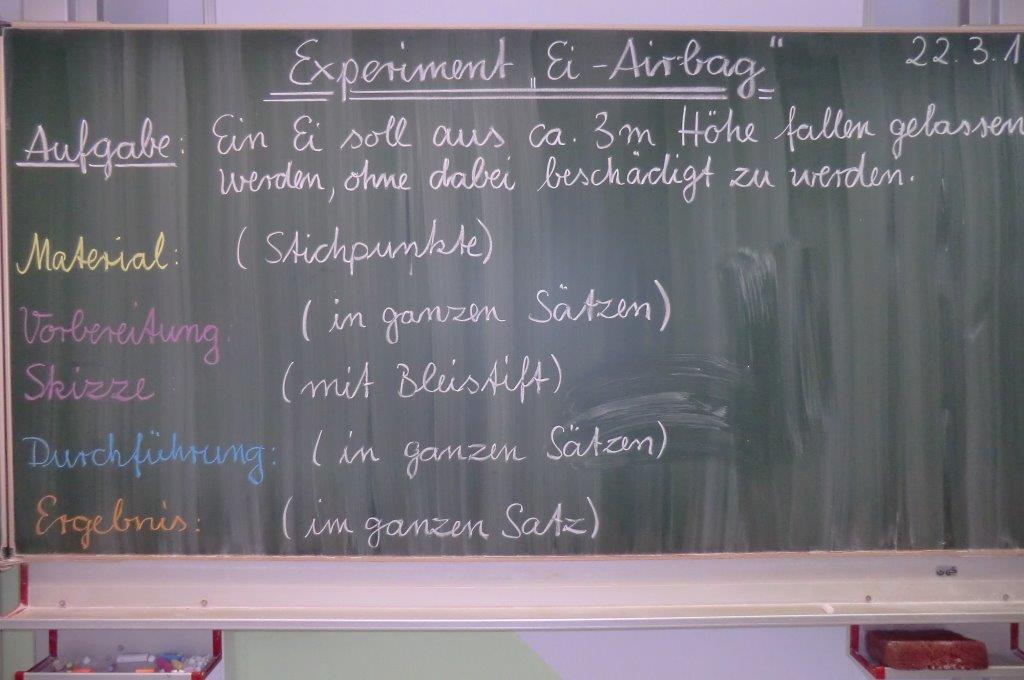 Experiment „Ei-Airbag“
22.3.1
Aufgabe: Ein Ei soll aus ca. 3m Höhe fallen gelassen
werden, ohne dabei beschädigt zu werden.
Material: (Stichpunkte)
Vorbereitung: (in ganzen Sätzen)
Skizze : (mit Bleistift)
Durchführung: (in ganzen Sätzen)
Ergebnis: (im ganzen Satz)